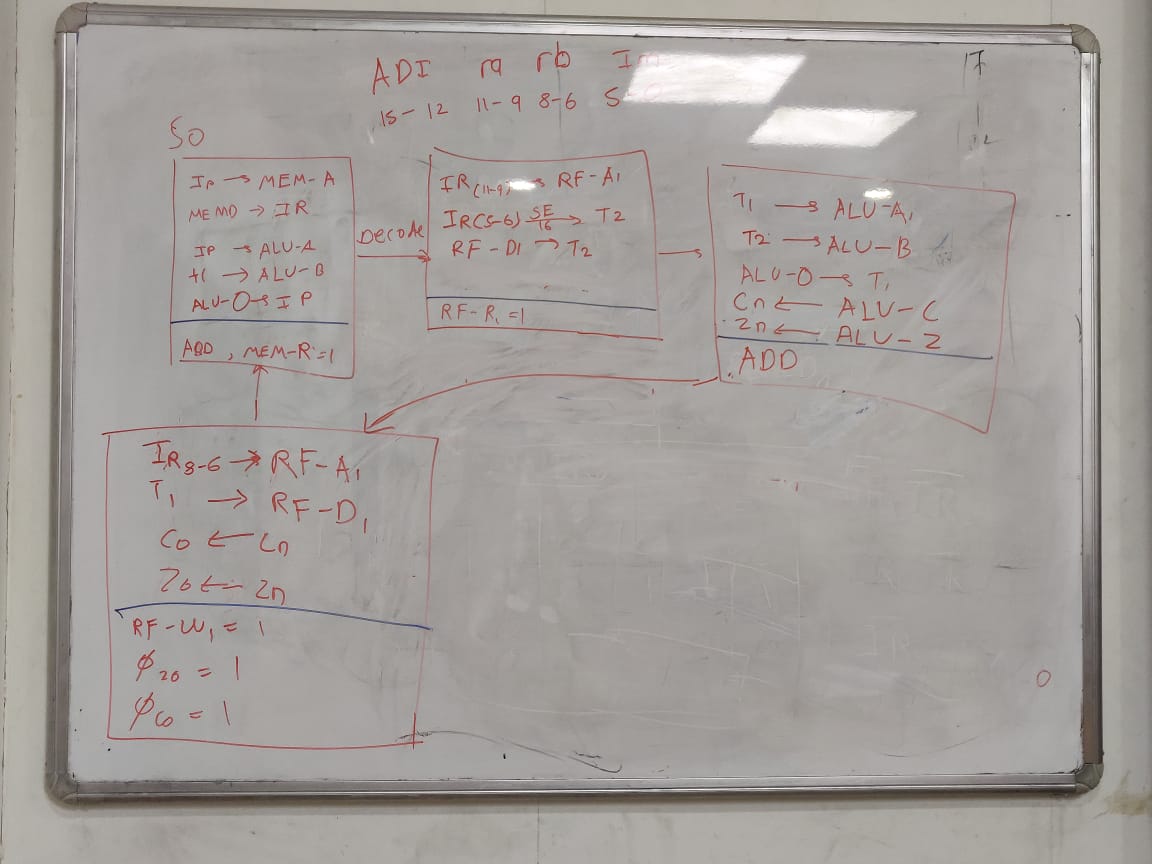 ADI ra rb I
15-12 11-9 8-6 5
17
S0
IP → MEM-A
MEMD → IR
IP → ALU-A
+1 → ALU-B
ALU-O → IP
ADD, MEM-R=1
Decode
IR(11-9) → RF-A1
IR(5-6) SE/16 → T2
RF-D1 → T2
RF-R1=1
T1 → ALU-A1
T2 → ALU-B
ALU-O → T1
Cn ← ALU-C
Zn ← ALU-Z
ADD
IR8-6 → RF-A1
T1 → RF-D1
C0 ← Cn
Z0 ← Zn
RF-W1 = 1
φZ0 = 1
φC0 = 1
0